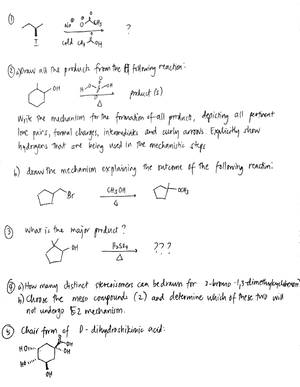 ① Na⊕ ⊖O CH₃ ?
I cold CH₃ OH
② a) Draw all the products from the following reaction:
OH product(s)
Δ
Write the mechanism for the formation of all product, depicting all pertinent
lone pairs, formal charges, intermediates and curly arrows. Explicitly show
hydrogens that are being used in the mechanistic steps
b) draw the mechanism explaining the outcome of the following reaction:
Br CH₃OH OCH₃
Δ
③ What is the major product?
OH H₂SO₄ ???
Δ
④ a) How many distinct stereoisomers can be drawn for 2-bromo-1,3-dimethylcyclohexane?
b) Choose the meso compounds (2) and determine which of these two will
not undergo E2 mechanism.
⑤ Chair form of D-dihydroshikimic acid:
HO OH
HO
OH